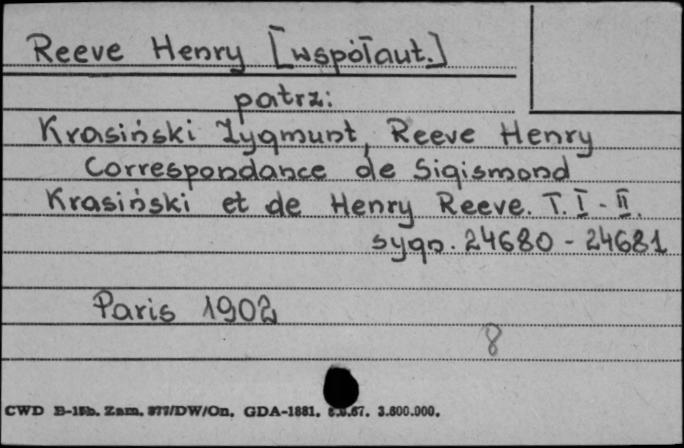 Reeve Henry [współaut.]
patrz:
Krasiński Zygmunt, Reeve Henry
Correspondance de Sigismond
Krasiński et de Henry Reeve. T. I - II.
sygn. 24680 - 24681
Paris 1902
8
CWD B-15b. Zam. 877/DW/On. GDA-1881. .67. 3.600.000.